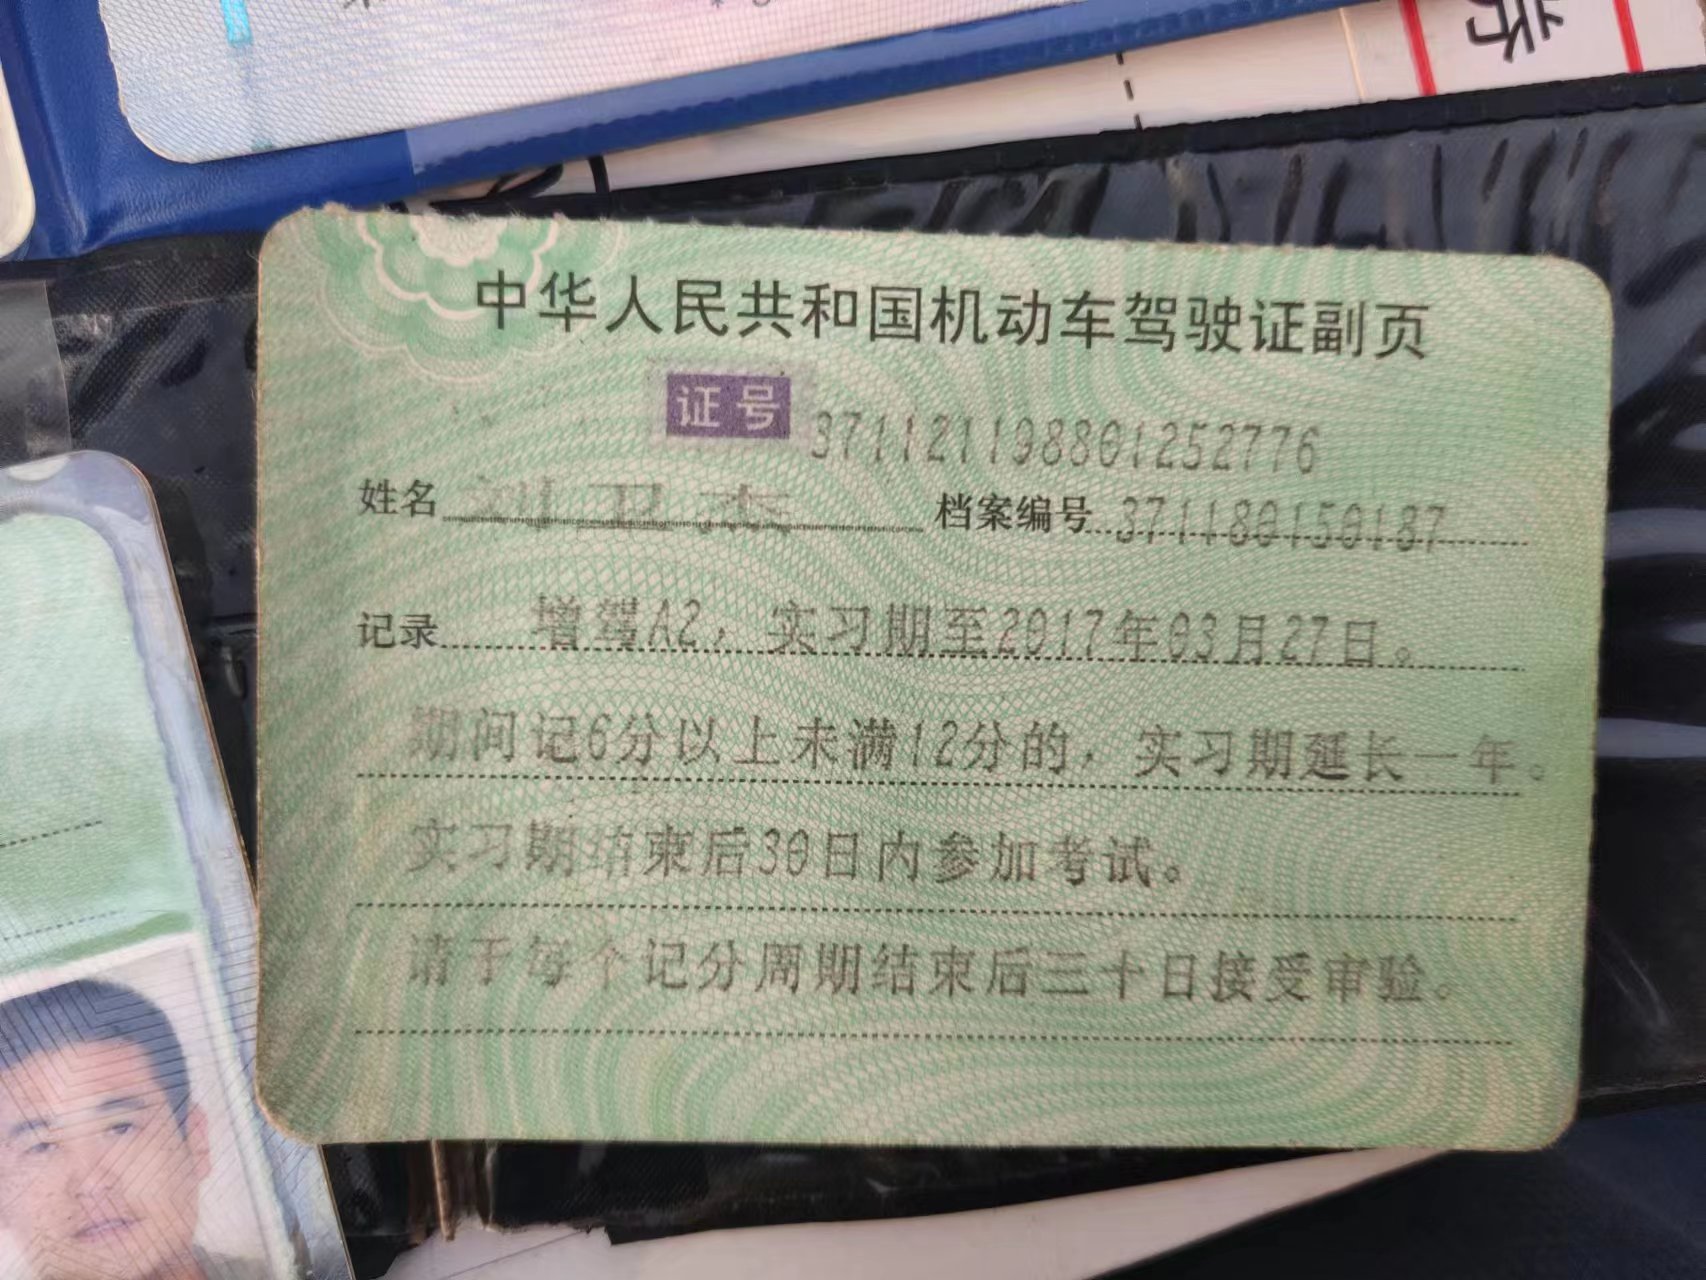 中华人民共和国机动车驾驶证副页
证号 371121198801252776
姓名 刘卫杰 档案编号 371180150187
记录 增驾A2，实习期至2017年03月27日。
期间记6分以上未满12分的，实习期延长一年。
实习期结束后30日内参加考试。
请于每个记分周期结束后三十日接受审验。